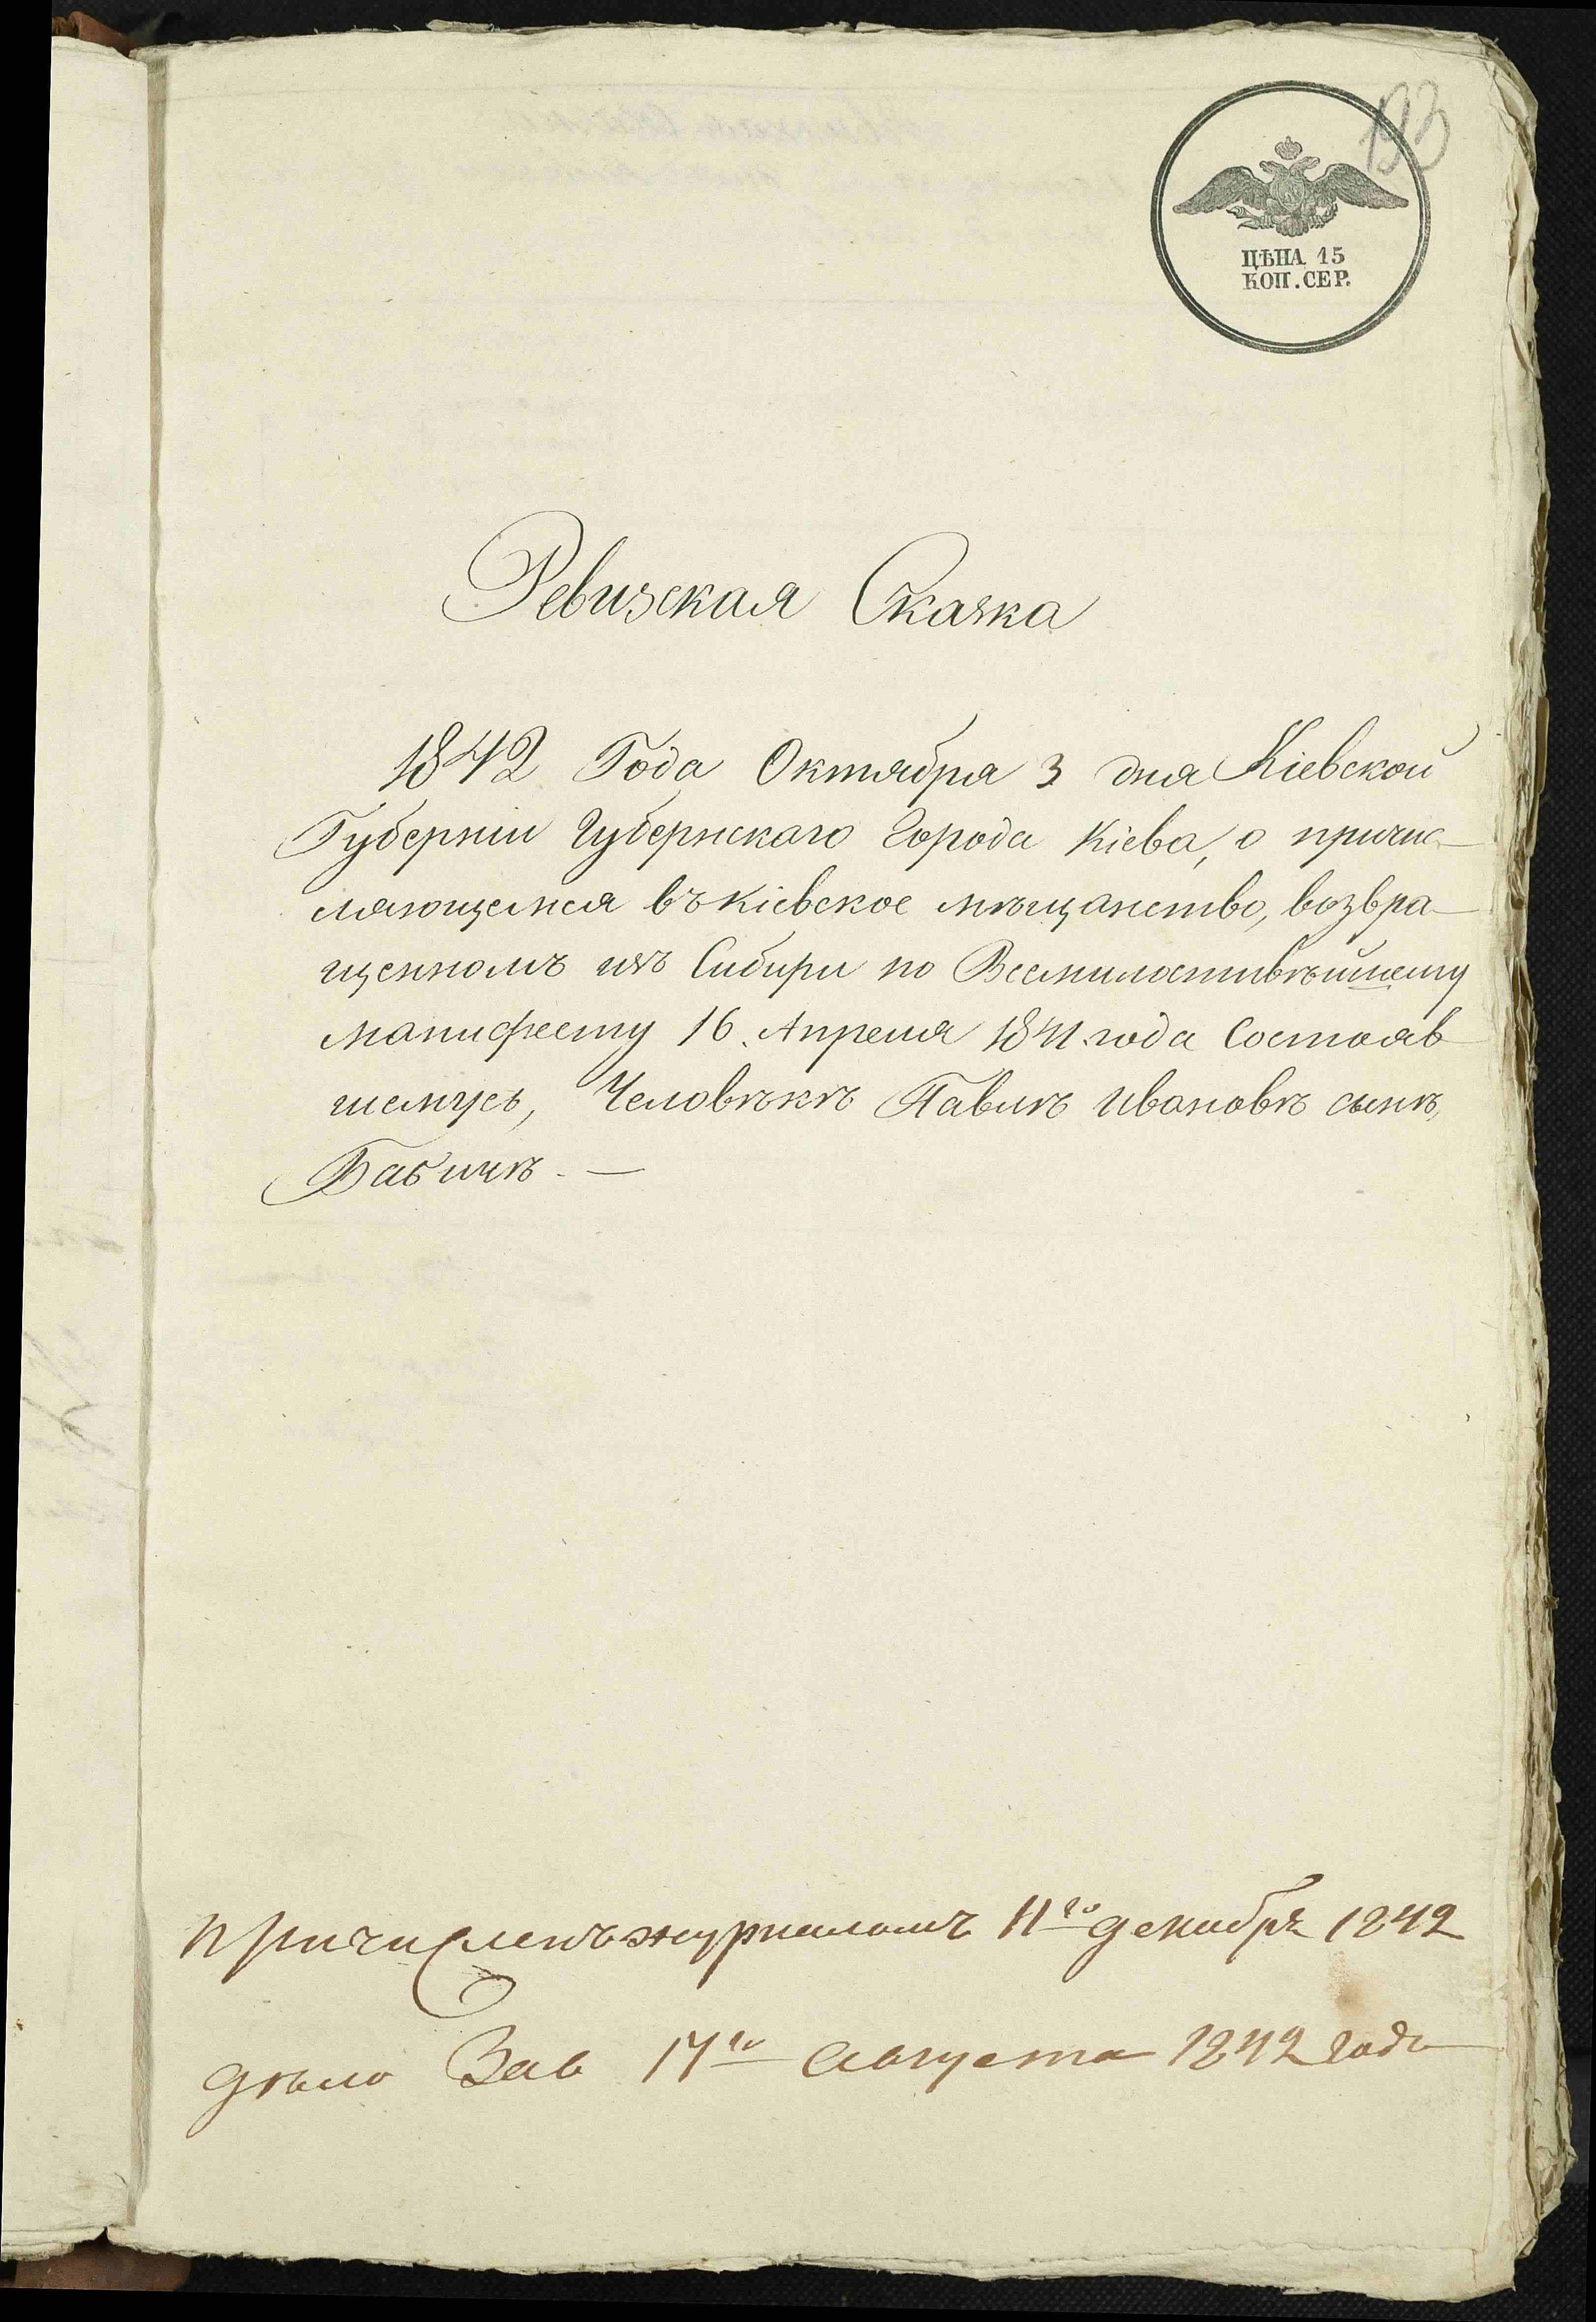 193
ЦѢНА 15
КОП. СЕР.
Ревизская Сказка
1842 Года Октября 3 дня Кіевской
Губерніи Губернскаго Города Кіева, о причис-
ляющемся въ кіевское мѣщанство, возвра-
щенномъ изъ Сибири по Всемилостивѣйшему
манифесту 16. Апреля 1841. года Состояв
шемусь, Человѣкѣ Павлѣ Ивановѣ сынѣ,
Бабичѣ. —
Причисленъ журналомъ 11го декабря 1842
дѣло 17го августа 1842 года